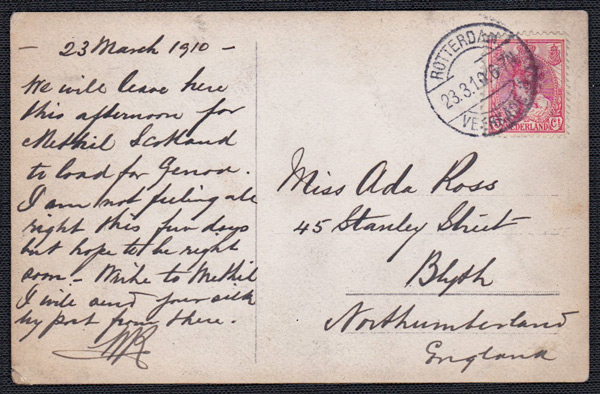 - 23 March 1910 -
We will leave here
this afternoon for
Methil Scotland
to load for Genoa.
I am not feeling all
right this few days
but hope to be right
soon - Write to Methil
I will send your silk
by post from there.
Miss Ada Ross
45 Stanley Street
Blyth
Northumberland
England
ROTTERDAM
23.3.10
NEDERLAND